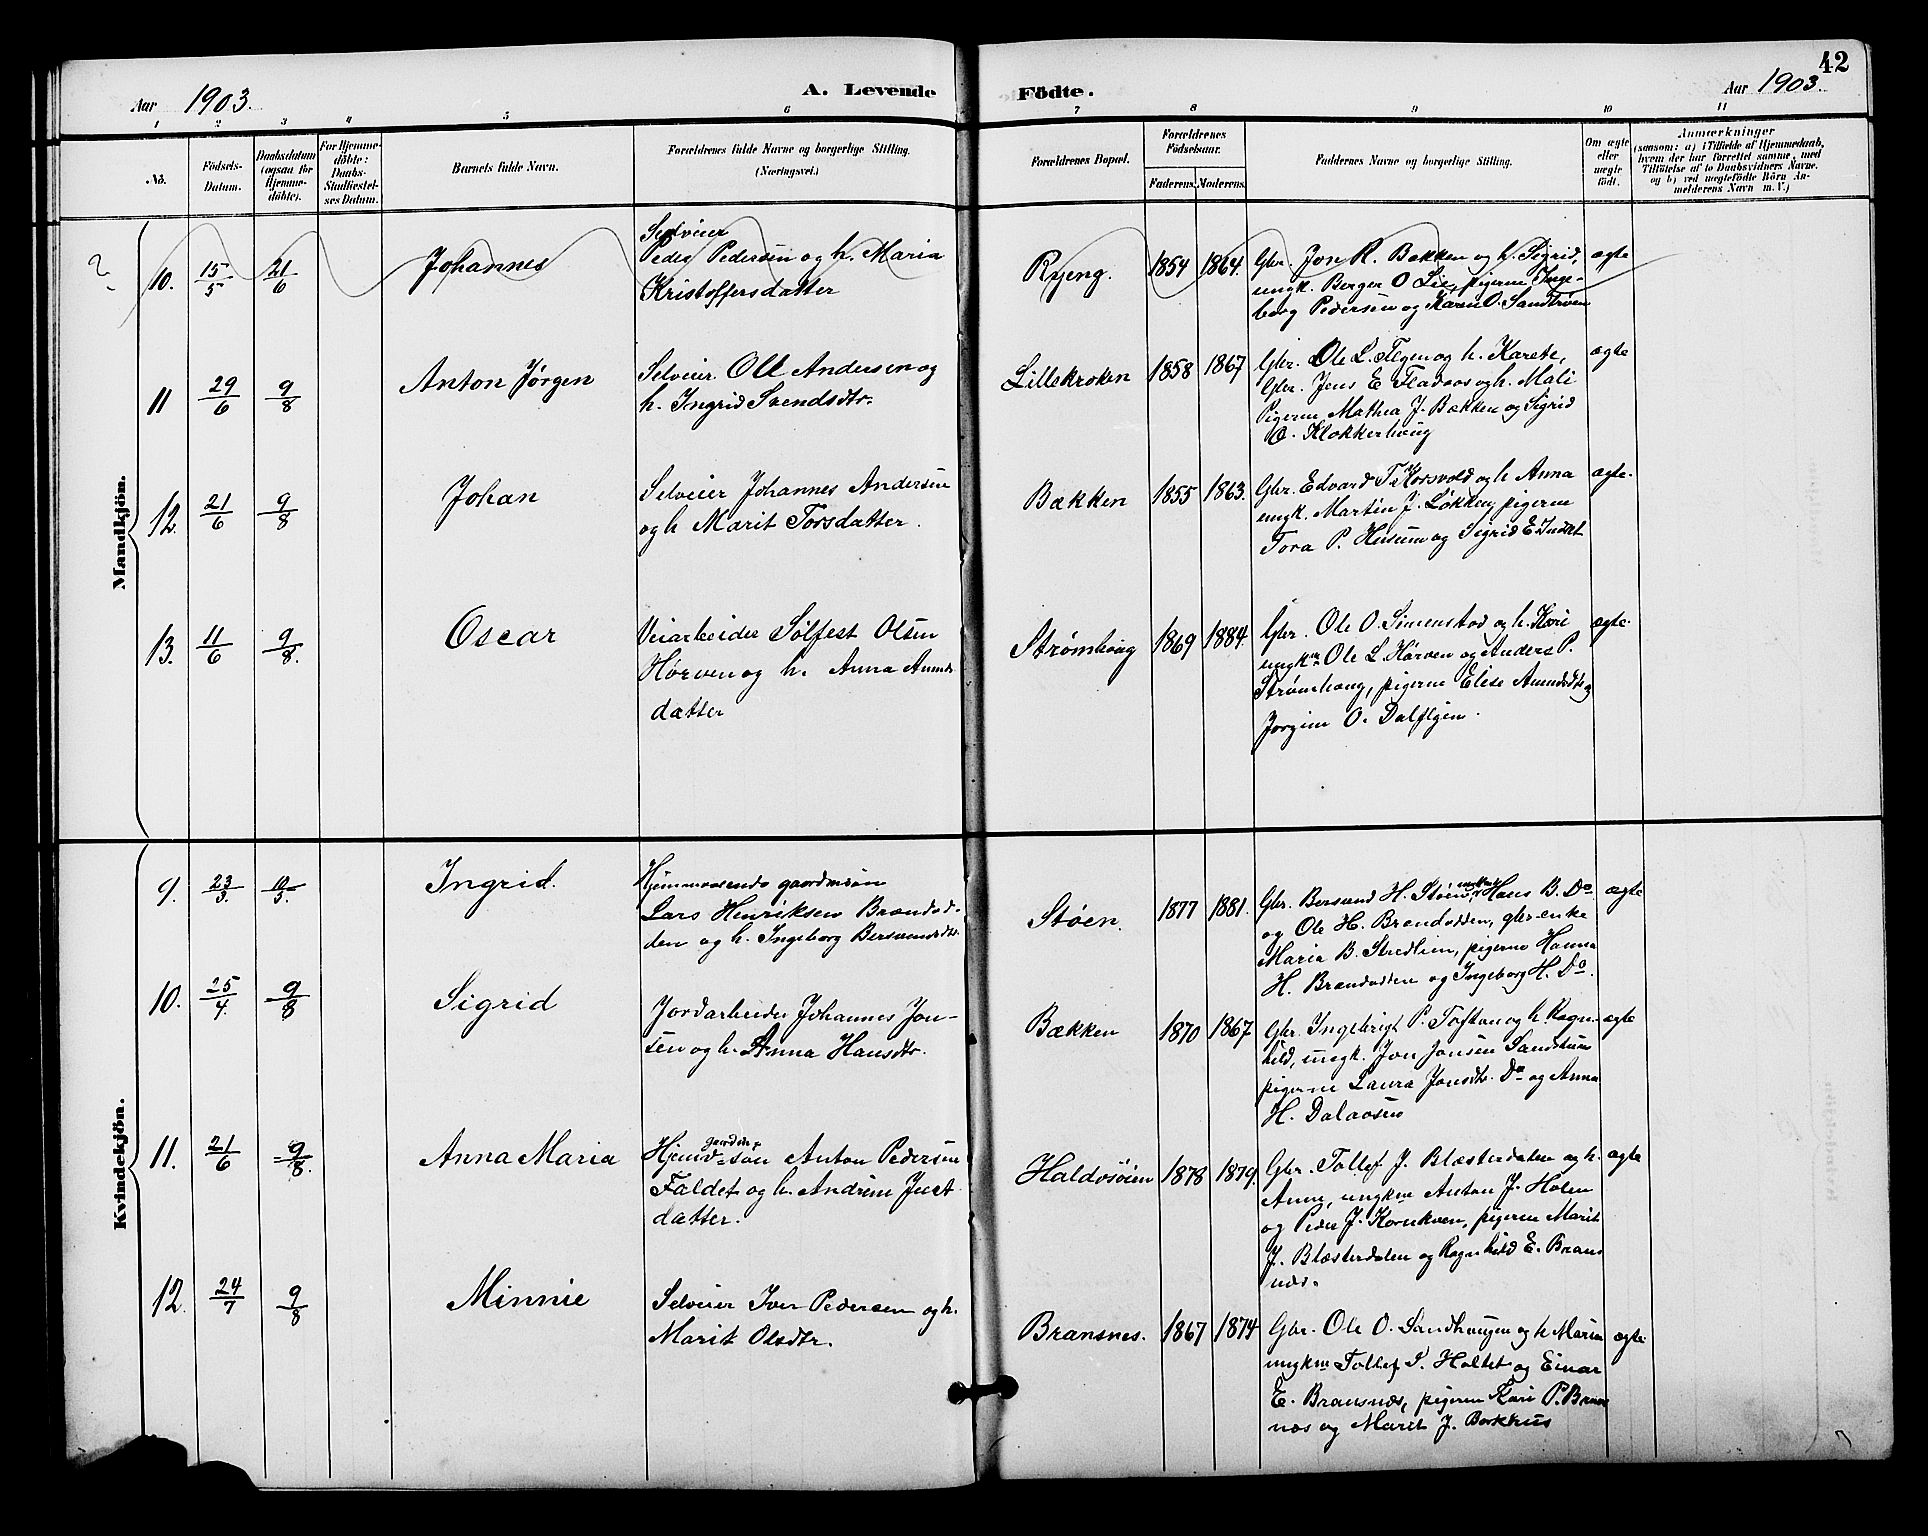 42
Aar 1903.
A. Levende Födte.
Aar 1903.
1 2 3 4 5 6 7 8 9 10 11
No.
Födsels-Datum.
Daabsdatum (ogsaa for Hjemmedöbte).
For Hjemmedöbte: Daabs-Stadfæstelses Datum.
Barnets fulde Navn.
Forældrenes fulde Navne og borgerlige Stilling.
(Næringsvei.)
Forældrenes Bopæl.
Forældrenes Födselsaar.
Faderens. Moderens.
Faddernes Navne og borgerlige Stilling.
Om ægte eller uægte födt.
Anmærkninger
(saasom: a) i Tilfælde af Hjemmedaab,
hvem der har forrettet samme, med
Tilföielse af to Daabsvidners Navne.
og b) ved uegtefödte Börn An-
melderens Navn m. V.)
Mandkjön.
?
10. 15/5 21/6 Johannes
Selveier
Peder Pedersen og h. Maria
Kristoffersdatter
Ryeng. 1854 1864.
Gbr. Jon R. Bækken og h. Sigrid,
ungk. Berger O Lie, pigerne Inge-
borg Pedersen og Karen O. Sandtrøen
ægte
11 29/6 9/8 Anton Jørgen
Selveier Ole Andersen og
h. Ingrid Svendsdtr.
Lillekroken 1858 1867
Gbr. Ole L. Flgen og h. Karete,
Gbr. Jens E Fladaas og h. Mali
Pigerne Mathea J. Bækken og Sigrid
O. Klokkerhaug
ægte
12. 21/6 9/8 Johan
Selveier Johannes Andersen
og h Marit Torsdatter.
Bækken 1855 1863.
Gbr. Edvard T. Korsvold og h Anna
ungk. Martin J. Løkken, pigerne
Tora P. Husum og Sigrid E. Indset
ægte.
13. 11/6 9/8. Oscar
Veiarbeider Sølfest Olsen
Hørven og h. Anna Amunds
datter
Strømhaug 1869 1884.
Gbr. Ole O. Simenstad og h. Kari
ungkm Ole L. Hørven og Anders P.
Strømhaug, pigerne Elise Amundsdtr og
Jørgine O. Dalflyen.
ægte.
Kvindekjön.
9. 23/3. 10/5. Ingrid.
Hjemmeværende gaardmsøn
Lars Henriksen Brændvod-
den og h. Ingeborg Bersvendsdtr.
Støen. 1877 1881.
Gbr. Bersvend H. Støen, ungkm Hans B. Do
og Ole H. Brændvodden, gbr-enke
Maria B. Stedlien, pigerne Hanna
H. Brændvodden og Ingeborg H. Do.
ægte
10. 25/4. 9/8 Sigrid
Jordarbeider Johannes Jon-
sen og h. Anna Hansdtr.
Bækken 1870 1867
Gbr. Ingebrigt P. Toftan og h. Ragn-
hild, ungk. Jon Jonsen Sandtrøen
pigerne Laura Jonsdtr. Do og Anna
H. Dalaasen
ægte
11. 21/6 9/8. Anna Maria
Hjemv. gaardm.søn Anton Pedersen
Faldet og h. Andrine Just
datter.
Haldosøien 1878 1879.
Gbr. Tollef J. Blæsterdalen og h.
Anne, ungkm Anton J. Holen
og Peder J. Kornkven, pigerne Marit
J. Blæsterdalen og Ragnhild E. Brans
næs.
ægte
12. 24/7 9/8 Minnie
Selveier Iver Pedersen og h.
Marit Olsdtr.
Bransnes. 1867 1874
Gbr. Ole O. Sandhaugen og h Maria
ungkm Tollef I. Holtet og Einar
E. Bransnæs, pigerne Kari P. Brans
næs og Marit J. Borkhus
ægte